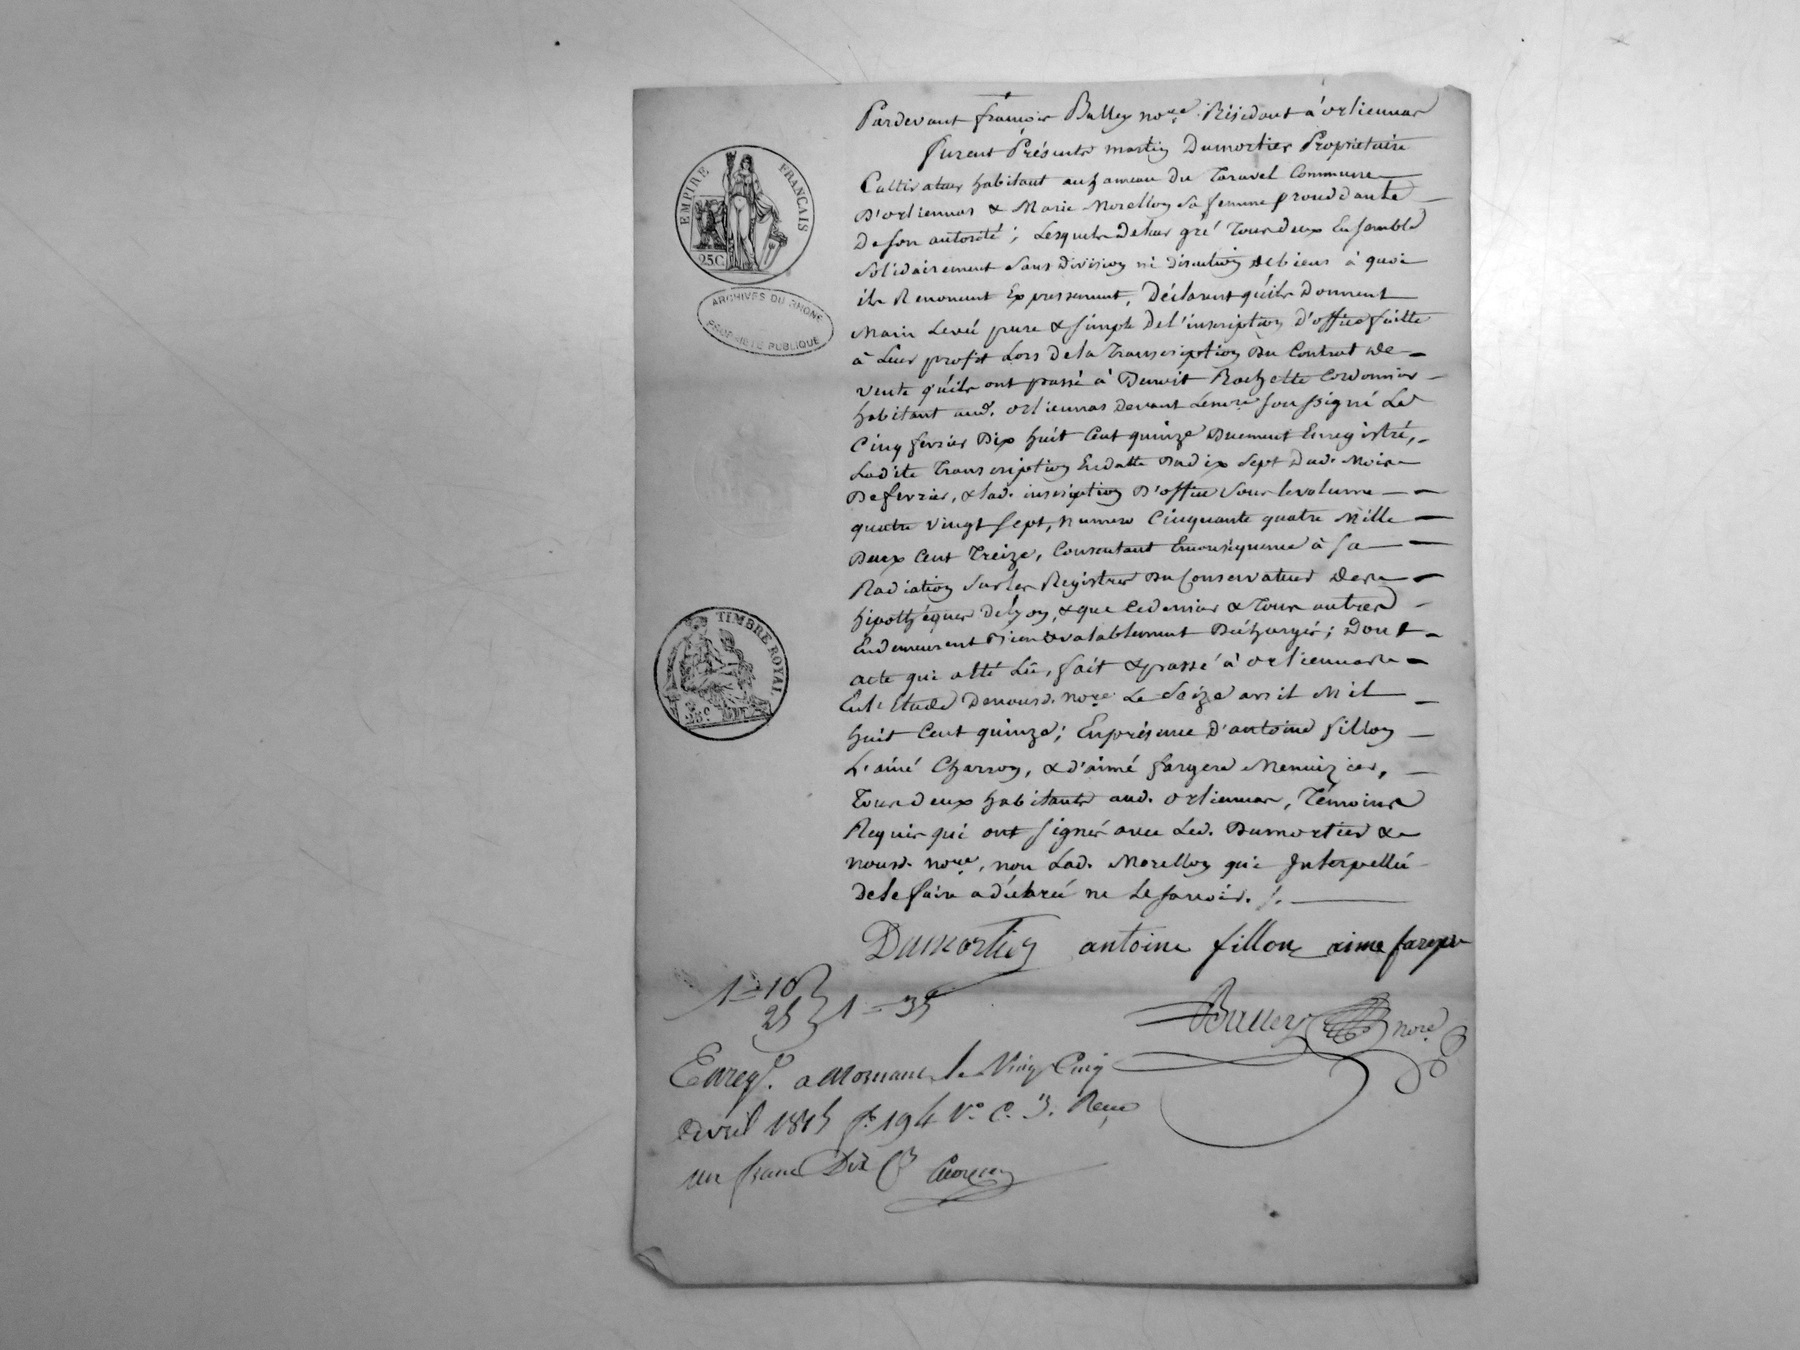 Pardevant françois Balley no.re Résidant à orliennas
furent Présents martin Dumortier Propriétaire
Cultivateur habitant au hameau du Taravel Commune
D'orliennas & Marie Morellon sa femme procédante
De son autorité ; Lesquels de leur gré Tous deux Ensemble
solidairement sans Division ni discution de biens à quoi
ils Renoncent Expressement, Déclarent qu'ils Donnent
Main Levée pure & simple De l'inscription d'office faitte
à Leur profit Lors de la Transcription Du Contrat de
vente qu'ils ont passé à Benoit Rochette Cordonnier
habitant aud. orliennas devant Le no.re soussigné Le
Cinq fevrier Dix huit Cent quinze Duement Enregistré,
Ladite Transcription En datte Du dix sept Dud. Mois
De fevrier, & lad. inscription D'office sous le volume
quatre vingt sept, numero Cinquante quatre Mille
Deux Cent Treize, Consentant En conséquence à sa
Radiation sur les Registres Du Conservateur des
hipothèques de Lyon, & que Ce dernier & Tous autres
En demeurent bien & valablement Déchargés ; Dont
acte qui a été Lû, fait & passé à orliennas
En l'étude de nousd. no.re Le Seize avril Mil
huit Cent quinze ; En présence D'antoine fillon
L'ainé Charron, & d'aimé fargere Menuizier,
Tous deux habitants aud. orliennas, Témoins
Requis qui ont signés avec Led. Dumortier &
nousd. no.re, non Lad. Morellon qui Interpellée
de le faire a déclaré ne le savoir. /.
Dumortier antoine fillon aime fargere
Balley no.re
1 = 10
25 } 1 = 35
Enreg.é a Mornant le Vingt Cinq
avril 1815 f.o 194 V.o C. 3. Reçu
un franc Dix C.
EMPIRE FRANÇAIS
25C
ARCHIVES DU RHONE
PROPRIÉTÉ PUBLIQUE
TIMBRE ROYAL
25C